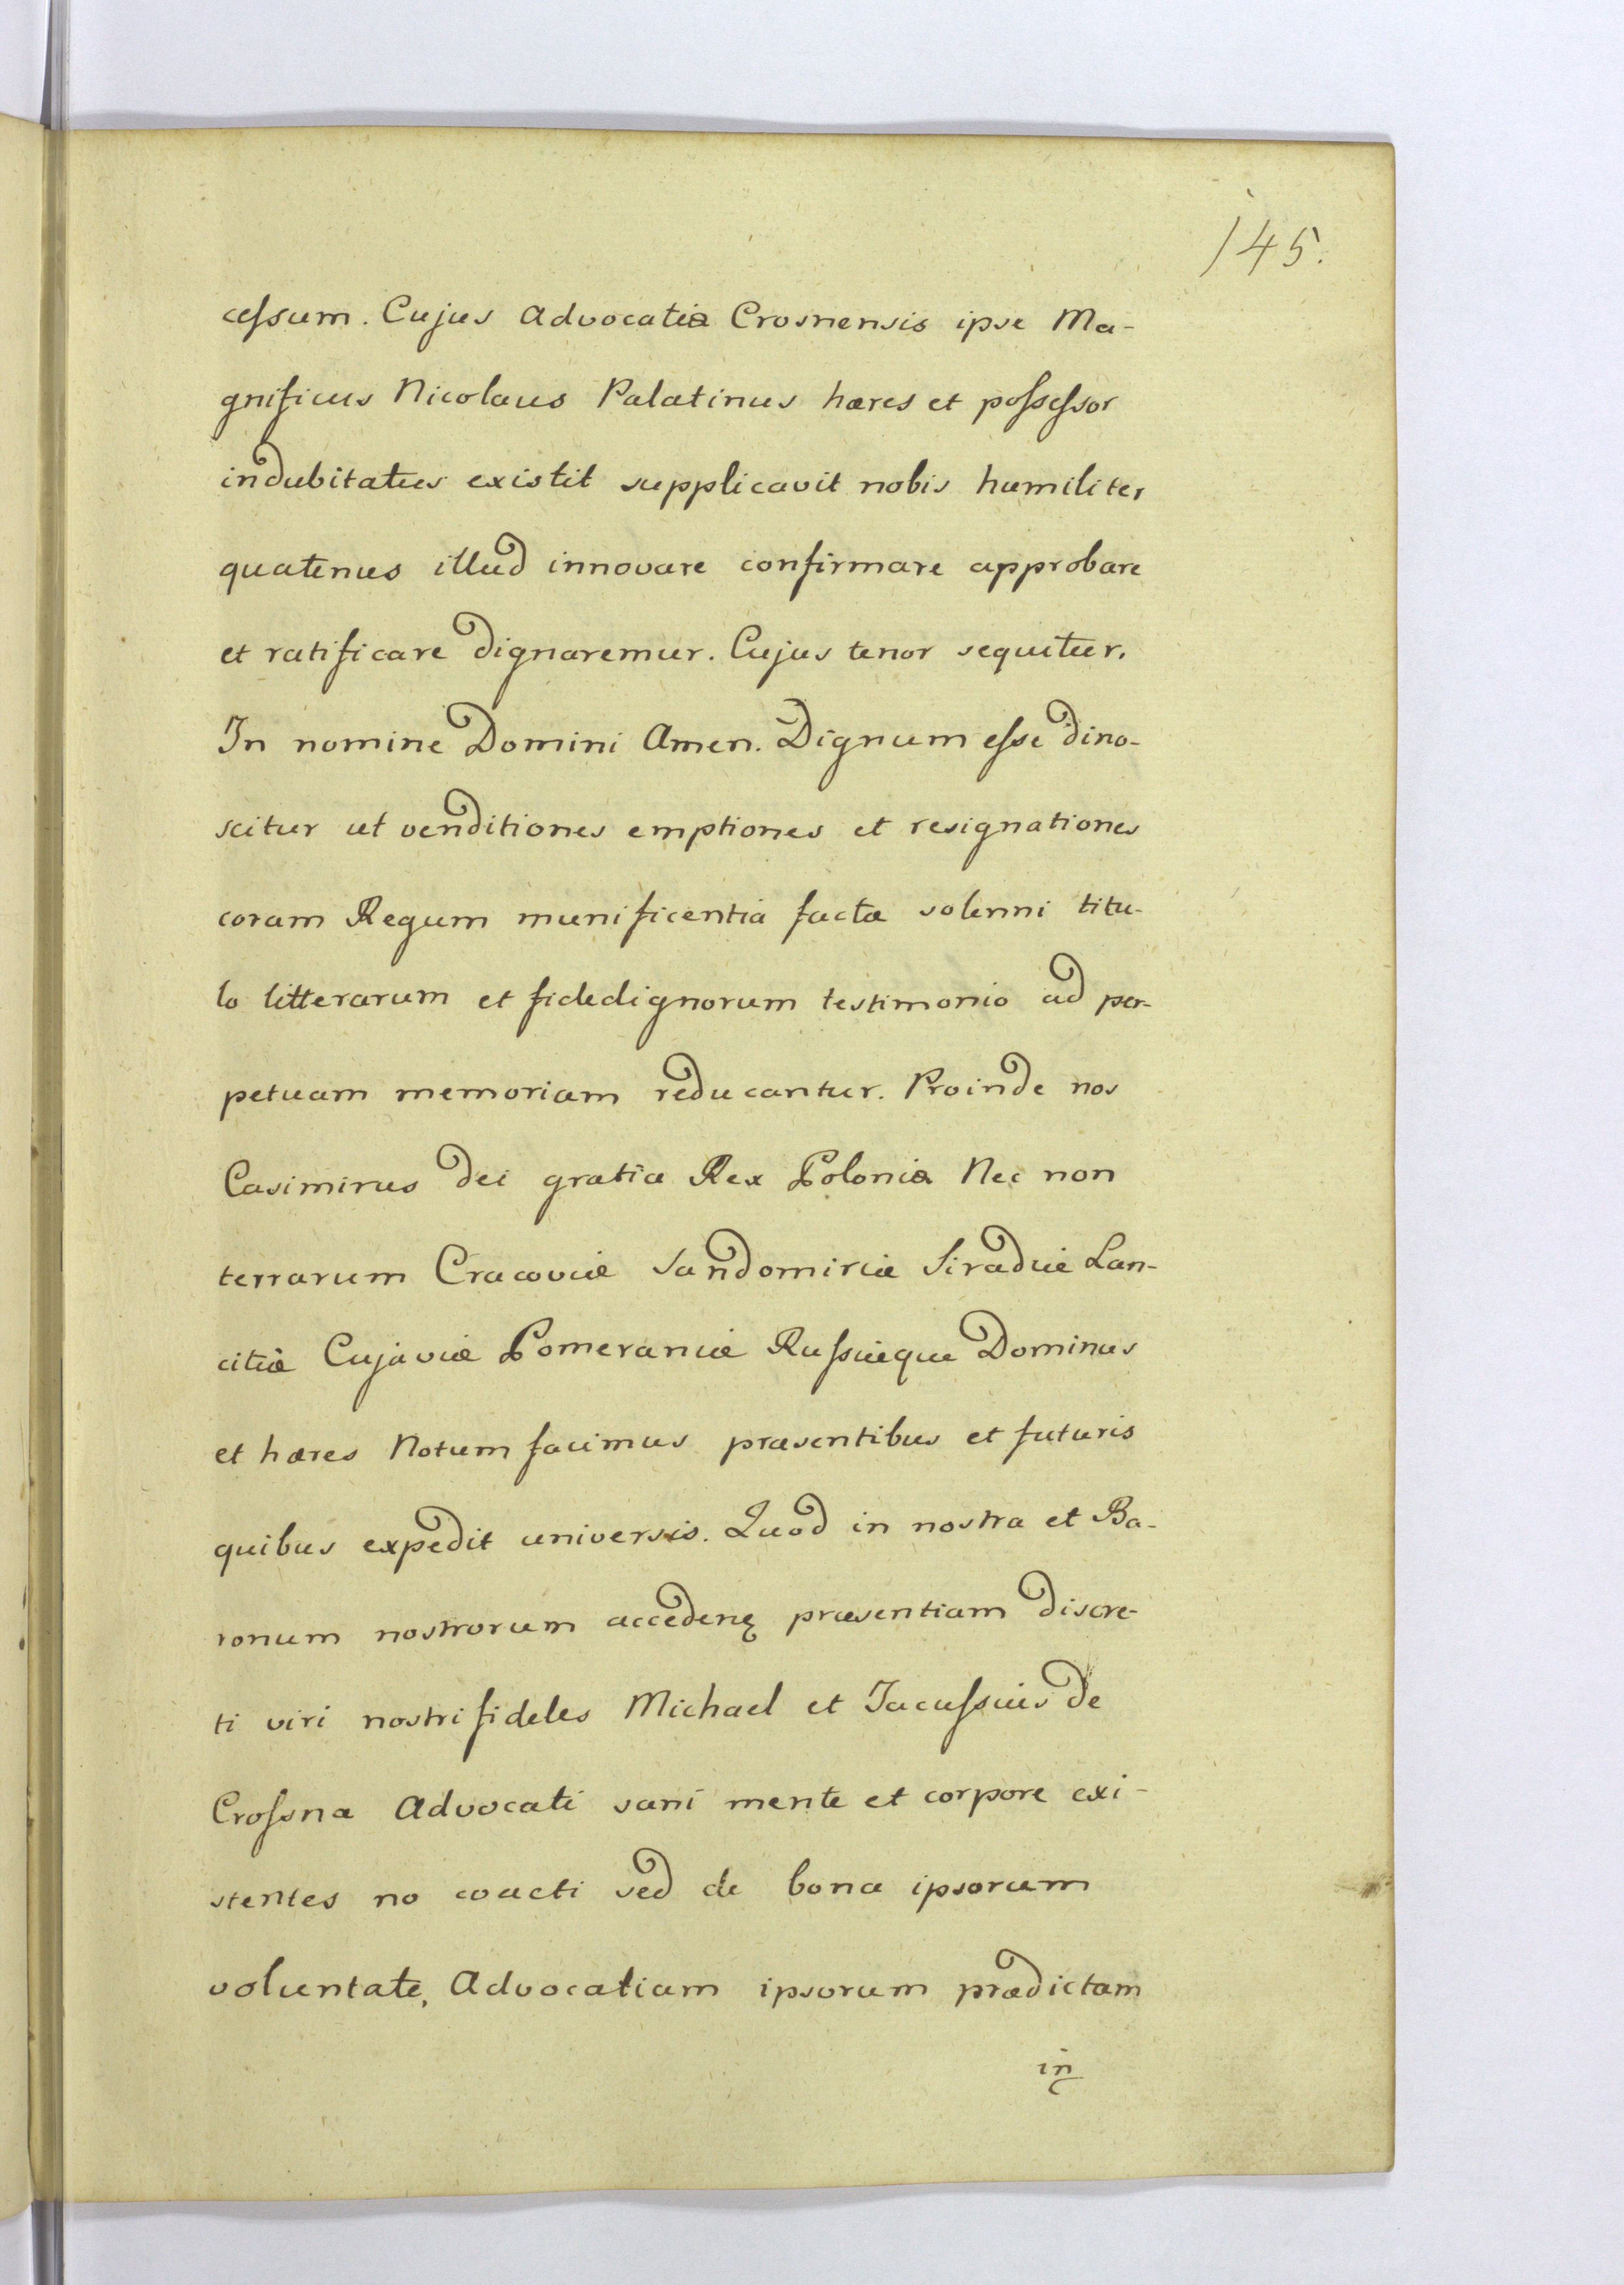 145.
cessum. Cujus Advocatiæ Crosnensis ipse Ma-
gnificus Nicolaus Palatinus hæres et possessor
indubitatus existit supplicavit nobis humiliter
quatenus illud innovare confirmare approbare
et ratificare dignaremur. Cujus tenor sequitur.
In nomine Domini Amen. Dignum esse dino-
scitur ut venditiones emptiones et resignationes
coram Regum munificentia factæ solenni titu-
lo litterarum et fidedignorum testimonio ad per-
petuam memoriam reducantur. Proinde nos
Casimirus dei gratia Rex Poloniæ Nec non
terrarum Cracoviæ Sandomiriæ Siradiæ Lan-
citiæ Cujaviæ Pomeraniæ Russiæque Dominus
et hæres Notum facimus præsentibus et futuris
quibus expedit universis. Quod in nostra et Ba-
ronum nostrorum accedenę præsentiam discre-
ti viri nostri fideles Michael et Jacussius de
Crossna Advocati sani mente et corpore exi-
stentes no coacti sed de bona ipsorum
voluntate, Advocatiam ipsorum prædictam
in